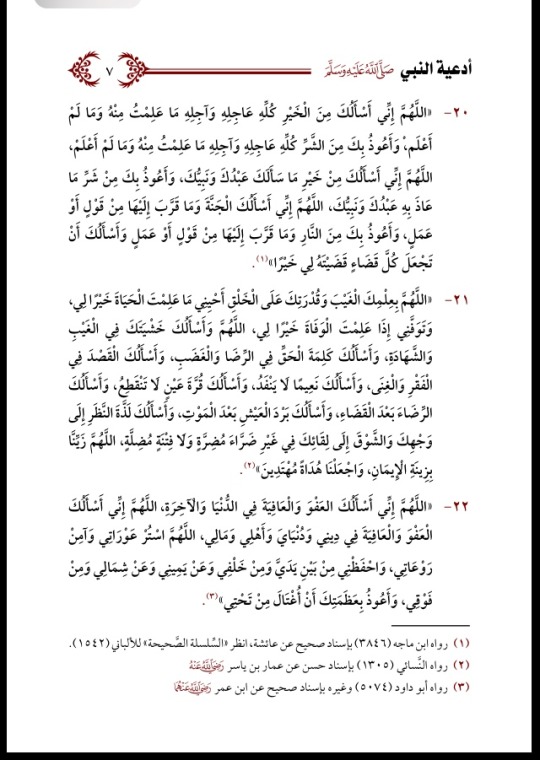 أدعية النبي ﷺ ٧
٢٠- «اللَّهُمَّ إِنِّي أَسْأَلُكَ مِنَ الْخَيْرِ كُلِّهِ عَاجِلِهِ وَآجِلِهِ مَا عَلِمْتُ مِنْهُ وَمَا لَمْ
أَعْلَمْ، وَأَعُوذُ بِكَ مِنَ الشَّرِّ كُلِّهِ عَاجِلِهِ وَآجِلِهِ مَا عَلِمْتُ مِنْهُ وَمَا لَمْ أَعْلَمْ،
اللَّهُمَّ إِنِّي أَسْأَلُكَ مِنْ خَيْرِ مَا سَأَلَكَ عَبْدُكَ وَنَبِيُّكَ، وَأَعُوذُ بِكَ مِنْ شَرِّ مَا
عَاذَ بِهِ عَبْدُكَ وَنَبِيُّكَ، اللَّهُمَّ إِنِّي أَسْأَلُكَ الْجَنَّةَ وَمَا قَرَّبَ إِلَيْهَا مِنْ قَوْلٍ أَوْ
عَمَلٍ، وَأَعُوذُ بِكَ مِنَ النَّارِ وَمَا قَرَّبَ إِلَيْهَا مِنْ قَوْلٍ أَوْ عَمَلٍ وَأَسْأَلُكَ أَنْ
تَجْعَلَ كُلَّ قَضَاءٍ قَضَيْتَهُ لِي خَيْرًا»(١).
٢١- «اللَّهُمَّ بِعِلْمِكَ الْغَيْبَ وَقُدْرَتِكَ عَلَى الْخَلْقِ أَحْيِنِي مَا عَلِمْتَ الْحَيَاةَ خَيْرًا لِي،
وَتَوَفَّنِي إِذَا عَلِمْتَ الْوَفَاةَ خَيْرًا لِي، اللَّهُمَّ وَأَسْأَلُكَ خَشْيَتَكَ فِي الْغَيْبِ
وَالشَّهَادَةِ، وَأَسْأَلُكَ كَلِمَةَ الْحَقِّ فِي الرِّضَا وَالْغَضَبِ، وَأَسْأَلُكَ الْقَصْدَ فِي
الْفَقْرِ وَالْغِنَى، وَأَسْأَلُكَ نَعِيمًا لَا يَنْفَدُ، وَأَسْأَلُكَ قُرَّةَ عَيْنٍ لَا تَنْقَطِعُ، وَأَسْأَلُكَ
الرِّضَاءَ بَعْدَ الْقَضَاءِ، وَأَسْأَلُكَ بَرْدَ الْعَيْشِ بَعْدَ الْمَوْتِ، وَأَسْأَلُكَ لَذَّةَ النَّظَرِ إِلَى
وَجْهِكَ وَالشَّوْقَ إِلَى لِقَائِكَ فِي غَيْرِ ضَرَّاءَ مُضِرَّةٍ وَلَا فِتْنَةٍ مُضِلَّةٍ، اللَّهُمَّ زَيِّنَّا
بِزِينَةِ الْإِيمَانِ، وَاجْعَلْنَا هُدَاةً مُهْتَدِينَ»(٢).
٢٢- «اللَّهُمَّ إِنِّي أَسْأَلُكَ الْعَفْوَ وَالْعَافِيَةَ فِي الدُّنْيَا وَالْآخِرَةِ، اللَّهُمَّ إِنِّي أَسْأَلُكَ
الْعَفْوَ وَالْعَافِيَةَ فِي دِينِي وَدُنْيَايَ وَأَهْلِي وَمَالِي، اللَّهُمَّ اسْتُرْ عَوْرَاتِي وَآمِنْ
رَوْعَاتِي، وَاحْفَظْنِي مِنْ بَيْنِ يَدَيَّ وَمِنْ خَلْفِي وَعَنْ يَمِينِي وَعَنْ شِمَالِي وَمِنْ
فَوْقِي، وَأَعُوذُ بِعَظَمَتِكَ أَنْ أُغْتَالَ مِنْ تَحْتِي»(٣).
(١) رواه ابن ماجه (٣٨٤٦) بإسناد صحيح عن عائشة، انظر «السِّلسلة الصَّحيحة» للألباني (١٥٤٢).
(٢) رواه النَّسائي (١٣٠٥) بإسناد حسن عن عمار بن ياسر رَضِيَ اللَّهُ عَنْهُ
(٣) رواه أبو داود (٥٠٧٤) وغيره بإسناد صحيح عن ابن عمر رَضِيَ اللَّهُ عَنْهُمَا